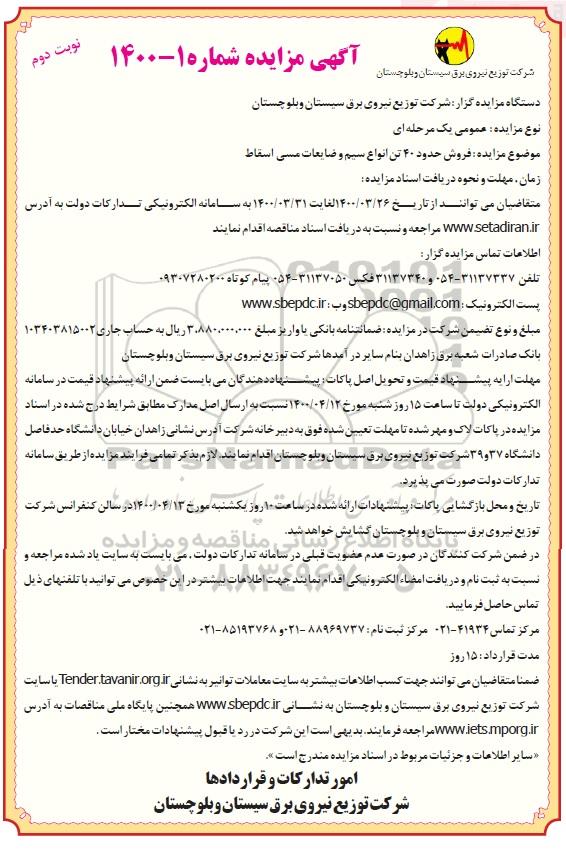 نوبت دوم
آگهی مزایده شماره ۱-۱۴۰۰
شرکت توزیع نیروی برق سیستان وبلوچستان
دستگاه مزایده گزار: شرکت توزیع نیروی برق سیستان وبلوچستان
نوع مزایده: عمومی یک مرحله ای
موضوع مزایده: فروش حدود ۴۰ تن انواع سیم و ضایعات مسی اسقاط
زمان، مهلت و نحوه دریافت اسناد مزایده:
متقاضیان می توانند از تاریخ ۱۴۰۰/۰۳/۲۶ لغایت ۱۴۰۰/۰۳/۳۱ به سامانه الکترونیکی تدارکات دولت به آدرس
www.setadiran.ir مراجعه و نسبت به دریافت اسناد مناقصه اقدام نمایند
اطلاعات تماس مزایده گزار:
تلفن ۳۱۱۳۷۳۳۷-۰۵۴ و ۳۱۱۳۷۳۴۰ فکس ۳۱۱۳۷۰۵۰-۰۵۴ پیام کوتاه ۰۹۳۰۷۲۸۰۲۰۰
پست الکترونیک: sbepdc@gmail.com وب: www.sbepdc.ir
مبلغ و نوع تضمین شرکت در مزایده: ضمانتنامه بانکی یا واریز مبلغ ۳،۸۸۰،۰۰۰،۰۰۰ ریال به حساب جاری ۱۰۳۴۰۳۸۱۵۰۰۲
بانک صادرات شعبه برق زاهدان بنام سایر در آمدها شرکت توزیع نیروی برق سیستان وبلوچستان
مهلت ارایه پیشنهاد قیمت و تحویل اصل پاکات: پیشنهاددهندگان می بایست ضمن ارائه پیشنهاد قیمت در سامانه
الکترونیکی دولت تا ساعت ۱۵ روز شنبه مورخ ۱۴۰۰/۰۴/۱۲ نسبت به ارسال اصل مدارک مطابق شرایط درج شده در اسناد
مزایده در پاکات لاک و مهر شده تا مهلت تعیین شده فوق به دبیر خانه شرکت آدرس نشانی زاهدان خیابان دانشگاه حدفاصل
دانشگاه ۳۷ و ۳۹ شرکت توزیع نیروی برق سیستان وبلوچستان اقدام نمایند. لازم بذکر تمامی فرایند مزایده از طریق سامانه
تدارکات دولت صورت می پذیرد.
تاریخ و محل بازگشایی پاکات: پیشنهادات ارائه شده در ساعت ۱۰ روز یکشنبه مورخ ۱۴۰۰/۰۴/۱۳ در سالن کنفرانس شرکت
توزیع نیروی برق سیستان و بلوچستان گشایش خواهد شد.
در ضمن شرکت کنندگان در صورت عدم عضویت قبلی در سامانه تدارکات دولت، می بایست به سایت یاد شده مراجعه و
نسبت به ثبت نام و دریافت امضاء الکترونیکی اقدام نمایند جهت اطلاعات بیشتر در این خصوص می توانید با تلفنهای ذیل
تماس حاصل فرمایید.
مرکز تماس ۴۱۹۳۴-۰۲۱ مرکز ثبت نام: ۸۸۹۶۹۷۳۷-۰۲۱ و ۸۵۱۹۳۷۶۸-۰۲۱
مدت قرارداد: ۱۵ روز
ضمنا متقاضیان می توانند جهت کسب اطلاعات بیشتر به سایت معاملات توانیر به نشانی Tender.tavanir.org.ir یا سایت
شرکت توزیع نیروی برق سیستان و بلوچستان به نشانی www.sbepdc.ir همچنین پایگاه ملی مناقصات به آدرس
www.iets.mporg.ir مراجعه فرمایند. بدیهی است این شرکت در رد یا قبول پیشنهادات مختار است.
«سایر اطلاعات و جزئیات مربوط در اسناد مزایده مندرج است».
امور تدارکات و قراردادها
شرکت توزیع نیروی برق سیستان وبلوچستان
ParsNamadData
پایگاه اطلاع رسانی مناقصه و مزایده
۰۲۱-۸۸۳۴۹۶۷۰-۵